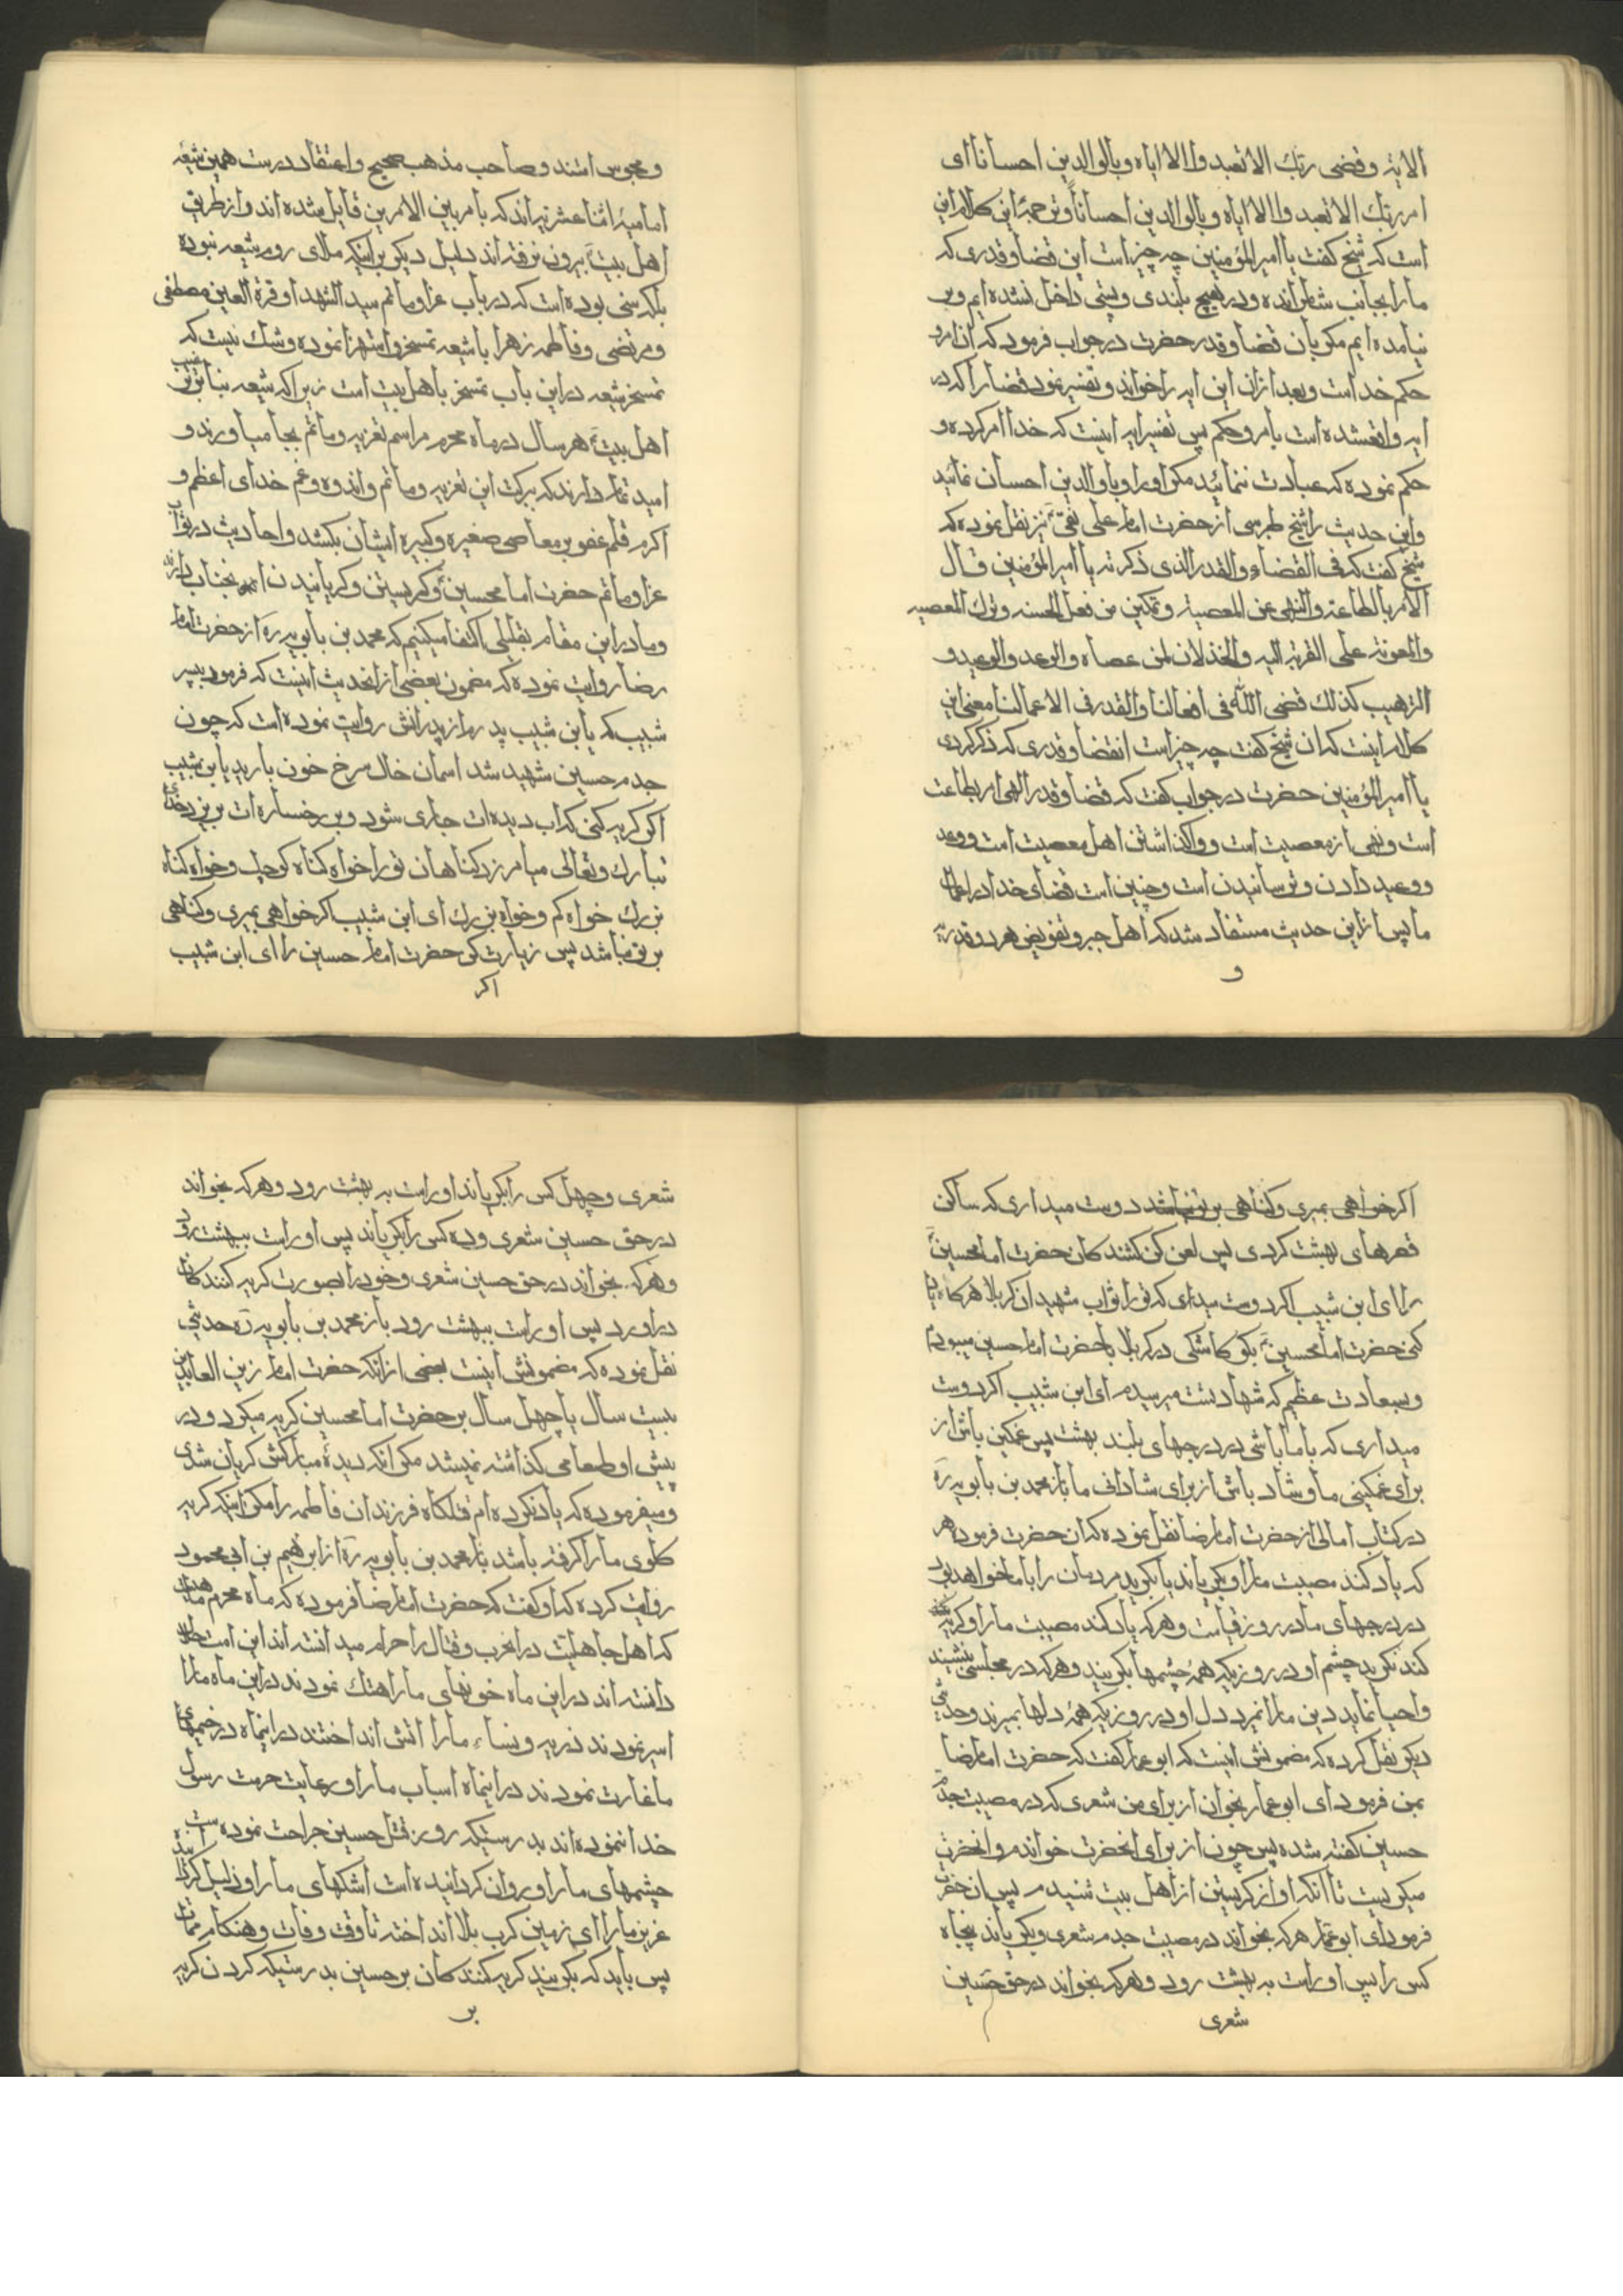 الایة وقضی ربک الا تعبدوا الا ایاه وبالوالدین احسانا ای
امر ربک الا تعبدوا الا ایاه وبالوالدین احسانا وترجمۀ این کلام این
است که شیخ گفت یا امیر المؤمنین چه چیز است این قضا وقدری که
ما را بجانب شام رانده ودر هیچ بلندی وپستی داخل نشده ایم وبر
نیامده ایم مکر بان قضا وقدر حضرت در جواب فرمود که ان امر و
حکم خداست وبعد ازان این ایه را خواند وتفسیر نمود قضا را که در
ایه واقعشده است بامر وحکم پس تفسیر ایه اینست که خدا امر کرده و
حکم نموده که عبادت ننمائید مکر او را وبا والدین احسان نمائید
واین حدیث را شیخ طبرسی از حضرت امام علی نقی نیز نقل نموده که
شیخ گفت که فی القضاء والقدر الذی ذکرته یا امیر المؤمنین قال
الامر بالطاعة والنهی عن المعصیة وتمکین من فعل الحسنه وترک المعصیه
والمعونة علی القربة الیه والخذلان لمن عصاه والوعد والوعید و
الترهیب کذلک قضی الله فی افعالنا والقدر فی الاعمالنا معنی این
کلام اینست که ان شیخ گفت چه چیز است انقضا وقدری که ذکر کردی
یا امیر المؤمنین حضرت در جواب گفت که قضا وقدر الهی امر بطاعت
است ونهی از معصیت است وواکذاشتن اهل معصیت است ووعد
ووعید دادن وترسانیدن است وچنین است قضای خدا در اعمال
ما پس از این حدیث مستفاد شد که اهل جبر وتفویض هر دو قدریه
و
ومجوس امتند وصاحب مذهب صحیح واعتقاد درست همین شیعه
امامیۀ اثنا عشریه اند که بامر بین الامرین قایل شده اند واز طریق
اهل بیت بیرون نرفته اند دلیل دیکر بر اینکه ملای روم شیعه نبوده
بلکه سنی بوده است که در باب عزا وماتم سید الشهدا وقرة العین مصطفی
ومرتضی وفاطمه زهرا با شیعه تمسخر واستهزا نموده وشک نیست که
تمسخر شیعه در این باب تمسخر باهل بیت است زیرا که شیعه بنا بر ترغیب
اهل بیت هر سال در ماه محرم مراسم تعزیه وماتم بجا میاورند و
امید تمام دارند که ببرکت این تعزیه وماتم واندوه وغم خدای اعظم و
اکرم قلم عفو بر معاصی صغیره وکبیره ایشان بکشد واحادیث در ثواب
عزا وماتم حضرت امام حسین وکریستن وکریانیدن بر انجناب
وما در این مقام بقلیلی اکتفا میکنیم که محمد بن بابویه ره از حضرت امام
رضا روایت نموده که مضمون بعضی از انحدیث اینست که فرمود بپسر
شبیب که یا بن شبیب پدرم از پدرانش روایت نموده است که چون
جدم حسین شهید شد اسمان خاک سرخ خون بارید یا بن شبیب
اکر کریه کنی که اب دیده ات جاری شود وبر رخساره ات بریزد خدای
تبارک وتعالی میامرزد کناهان تو را خواه کناه کوچک وخواه کناه
بزرک خواه کم وخواه بزرک ای ابن شبیب اکر خواهی بمیری وکناهی
بر تو نباشد پس زیارت کن حضرت امام حسین را ای ابن شبیب
اکر
اکر خواهی بمیری وکناهی بر تو نباشد دوست میداری که ساکن
قصرهای بهشت کردی پس لعن کن کشندکان حضرت امام حسین
را ای ابن شبیب اکر دوست میداری که تو را ثواب شهیدان کربلا هرکاه یاد
کنی حضرت امام حسین بکو کاشکی در کربلا با حضرت امام حسین میبودم
وبسعادت عظیم که شهادتست میرسیدم ای ابن شبیب اکر دوست
میداری که با ما باشی در درجهای بلند بهشت پس غمکین باش از
برای غمکینی ما وشاد باش از برای شادانی ما باز محمد بن بابویه ره
در کتاب امالی از حضرت امام رضا نقل نموده که ان حضرت فرمود هر
که یاد کند مصیبت ما را وبکریاند یا بکرید مردمان را با ما خواهد بود
در درجهای ما در روز قیامت وهرکه یاد کند مصیبت ما را وکریه
کند نکرید چشم او در روزیکه همۀ چشمها بکریند وهرکه در مجلسی بنشیند
واحیا نماید دین ما را نمیرد دل او در روزیکه همۀ دلها بمیرند وحدیثی
دیکر نقل کرده که مضمونش اینست که ابو عمار گفت که حضرت امام رضا
بمن فرمود ای ابو عمار بخوان از برای من شعری که در مصیبت جدم
حسین گفته شده پس چون از برای انحضرت خواندم وانحضرت
میکریست تا انکه اواز کریستن از اهل بیت شنیدم پس ان حضرت
فرمود ای ابو عمار هرکه بخواند در مصیبت جدم شعری وبکریاند پنجاه
کس را پس او راست به بهشت رود وهرکه بخواند در حق حسین
شعری
شعری وچهل کس را بکریاند او راست به بهشت رود وهرکه بخواند
در حق حسین شعری وده کس را بکریاند پس او راست ببهشت رود
وهرکه بخواند در حق حسین شعری وخود را بصورت کریه کنندکان
دراورد پس او راست ببهشت رود باز محمد بن بابویه ره حدیثی
نقل نموده که مضمونش اینست بعضی از انکه حضرت امام زین العابدین
بیست سال یا چهل سال بر حضرت امام حسین کریه میکرد ودر
پیش او طعامی کذاشته نمیشد مکر انکه دیدۀ مبارکش کریان شدی
ومیفرموده که یاد نکرده ام قتلکاه فرزندان فاطمه را مکر اینکه کریه
کلوی ما را کرفته باشد باز محمد بن بابویه ره از ابرهیم بن ابی محمود
روایت کرده که او گفت که حضرت امام رضا فرموده که ماه محرم ماهیست
که اهل جاهلیت در انحرب وقتال را حرام میدانسته اند این امت حلال
دانسته اند در این ماه خونهای ما را هتک نمودند در این ماه ما را
اسیر نمودند ذریه ونساء ما را اتش انداختند در اینماه در خیمهای
ما غارت نمودند در اینماه اسباب ما را ورعایت حرمت رسول
خدا ننموده اند بدرستیکه روز قتل حسین جراحت نموده است
چشمهای ما را وروان کردانیده است اشکهای ما را وذلیل کردانیده
عزیز ما را ای زمین کرب بلا انداخته تا وقت وفات وهنکام ممات
پس باید که بکریند کریه کنندکان بر حسین بدرستیکه کردن کریه
بر